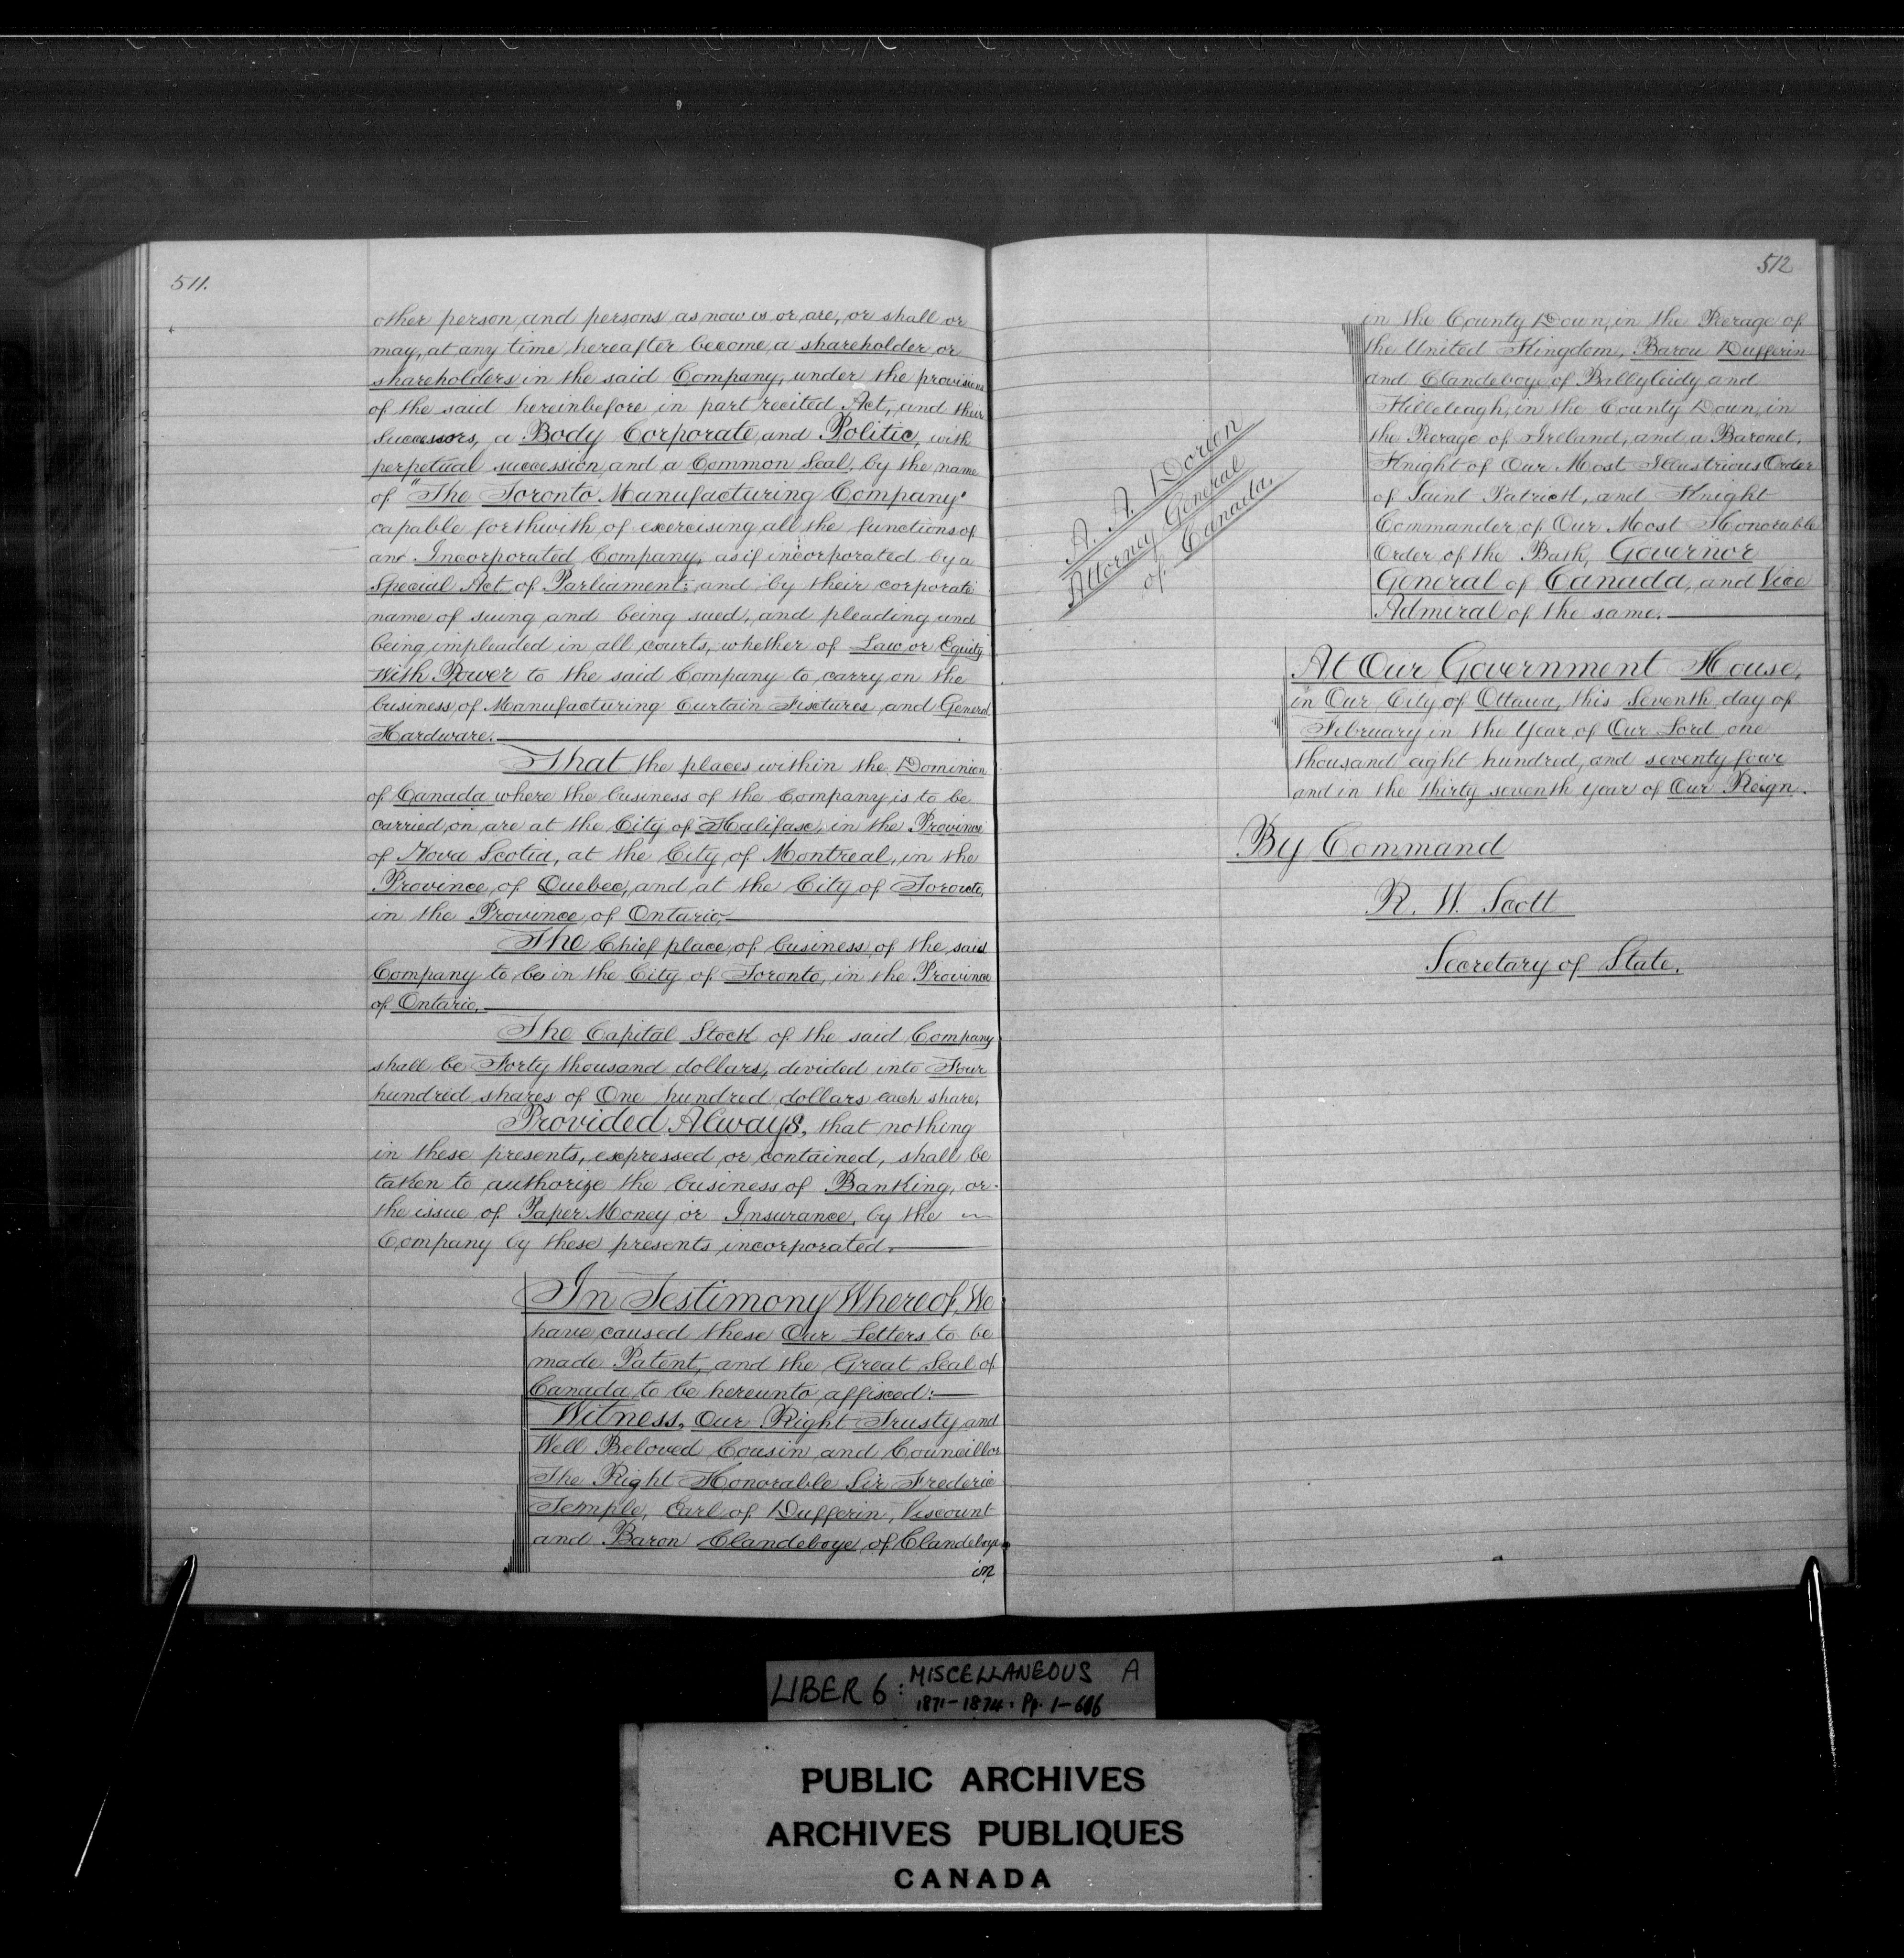 511.
other person and persons as now is or are, or shall or
may, at any time hereafter become a shareholder or
shareholders in the said Company, under the provisions
of the said hereinbefore in part recited Act, and their
successors, a Body Corporate and Politic, with
perpetual succession and a Common Seal, by the name
of "The Toronto Manufacturing Company"
capable forthwith of exercising all the functions of
an Incorporated Company, as if incorporated by a
Special Act of Parliament; and by their corporate
name of suing and being sued, and pleading and
being impleaded in all courts, whether of Law or Equity
With Power to the said Company to carry on the
business of Manufacturing Curtain Fixtures and General
Hardware.
That the places within the Dominion
of Canada where the business of the Company is to be
carried on are at the City of Halifax, in the Province
of Nova Scotia, at the City of Montreal, in the
Province of Quebec, and at the City of Toronto,
in the Province of Ontario,
The Chief place of business of the said
Company to be in the City of Toronto, in the Province
of Ontario.
The Capital Stock of the said Company
shall be Forty thousand dollars, divided into Four
hundred shares of One hundred dollars each share,
Provided Always, that nothing
in these presents, expressed or contained, shall be
taken to authorize the business of Banking, or
the issue of Paper Money or Insurance, by the
Company by these presents incorporated.
In Testimony Whereof, We
have caused these Our Letters to be
made Patent, and the Great Seal of
Canada to be hereunto affixed:
Witness, Our Right Trusty and
Well Beloved Cousin and Councillor
The Right Honorable Sir Frederic
Temple, Earl of Dufferin, Viscount
and Baron Clandeboye of Clandeboye
in
512
in the County Down, in the Peerage of
the United Kingdom, Baron Dufferin
and Clandeboye of Ballyleidy and
Killeleagh, in the County Down, in
the Peerage of Ireland, and a Baronet,
Knight of Our Most Illustrious Order
of Saint Patrick, and Knight
Commander of Our Most Honorable
Order of the Bath, Governor
General of Canada, and Vice
Admiral of the same.
A. A. Dorion
Attorney General
of Canada.
At Our Government House,
in Our City of Ottawa, this Seventh day of
February in the Year of Our Lord one
thousand eight hundred, and seventy four
and in the thirty seventh year of Our Reign.
By Command
R. W. Scott
Secretary of State.
LIBER 6: MISCELLANEOUS A
1871-1874: Pp. 1-606
PUBLIC ARCHIVES
ARCHIVES PUBLIQUES
CANADA